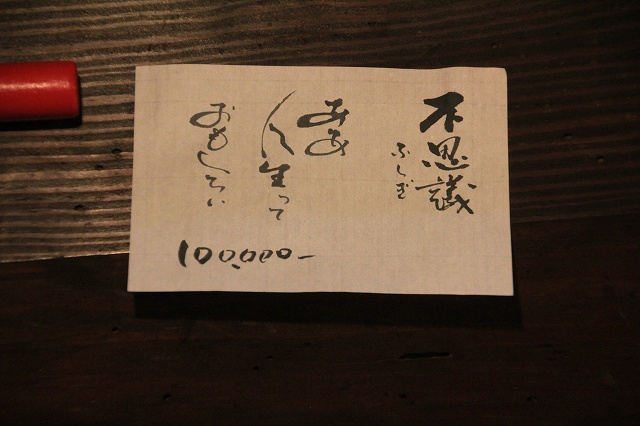 不思議
ふしぎ
ああ
人生って
おもしろい
100,000-